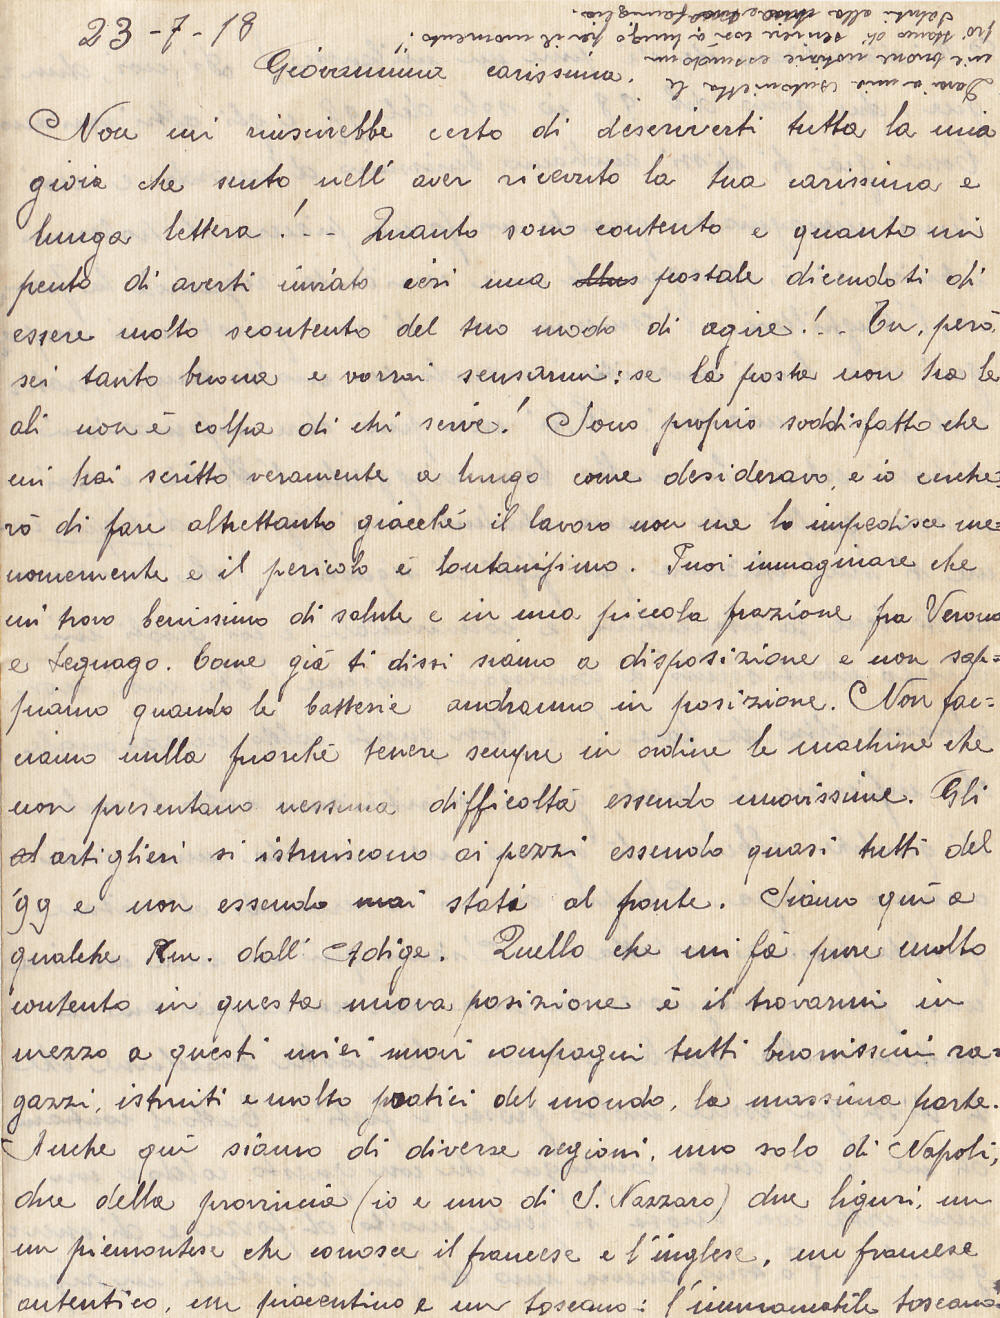 23-7-18
Giovannina carissima.
Non mi riuscirebbe certo di descriverti tutta la mia
gioia che sento nell' aver ricevuto la tua carissima e
lunga lettera! -- Quanto sono contento e quanto mi
pento di averti inviato ieri una postale dicendoti di
essere molto scontento del tuo modo di agire!.. Tu, però,
sei tanto buona e vorrai scusarmi: se la posta non ha le
ali non è colpa di chi scrive! Sono proprio soddisfatto che
mi hai scritto veramente a lungo come desideravo, e io cerche=
rò di fare altrettanto giacché il lavoro non me lo impedisce me=
nomemente e il pericolo è lontanissimo. Puoi immaginare che
mi trovo benissimo di salute e in una piccola frazione fra Verona
e Legnago. Come già ti dissi siamo a disposizione e non sap=
piamo quando le batterie andranno in posizione. Non fac=
ciamo nulla fuorché tenere sempre in ordine le macchine che
non presentano nessuna difficoltà essendo nuovissime. Gli
artiglieri si istruiscono ai pezzi essendo quasi tutti del
'99 e non essendo mai stati al fronte. Siamo quì a
qualche Km. dall' Adige. Quello che mi fà pure molto
contento in questa nuova posizione è il trovarmi in
mezzo a questi miei nuovi compagni tutti buonissimi ra=
gazzi, istruiti e molto pratici del mondo, la massima parte.
Anche quì siamo di diverse regioni, uno solo di Napoli,
due della provincia (io e uno di S. Nazzaro) due liguri, un
un piemontese che conosce il francese e l'inglese, un francese
autentico, un piacentino e un toscano: l'immancabile toscano
Darai a mia Antonietta le
mie buone notizie essendomi
di scrivere così a lungo per il momento.
Saluti alla tua famiglia.